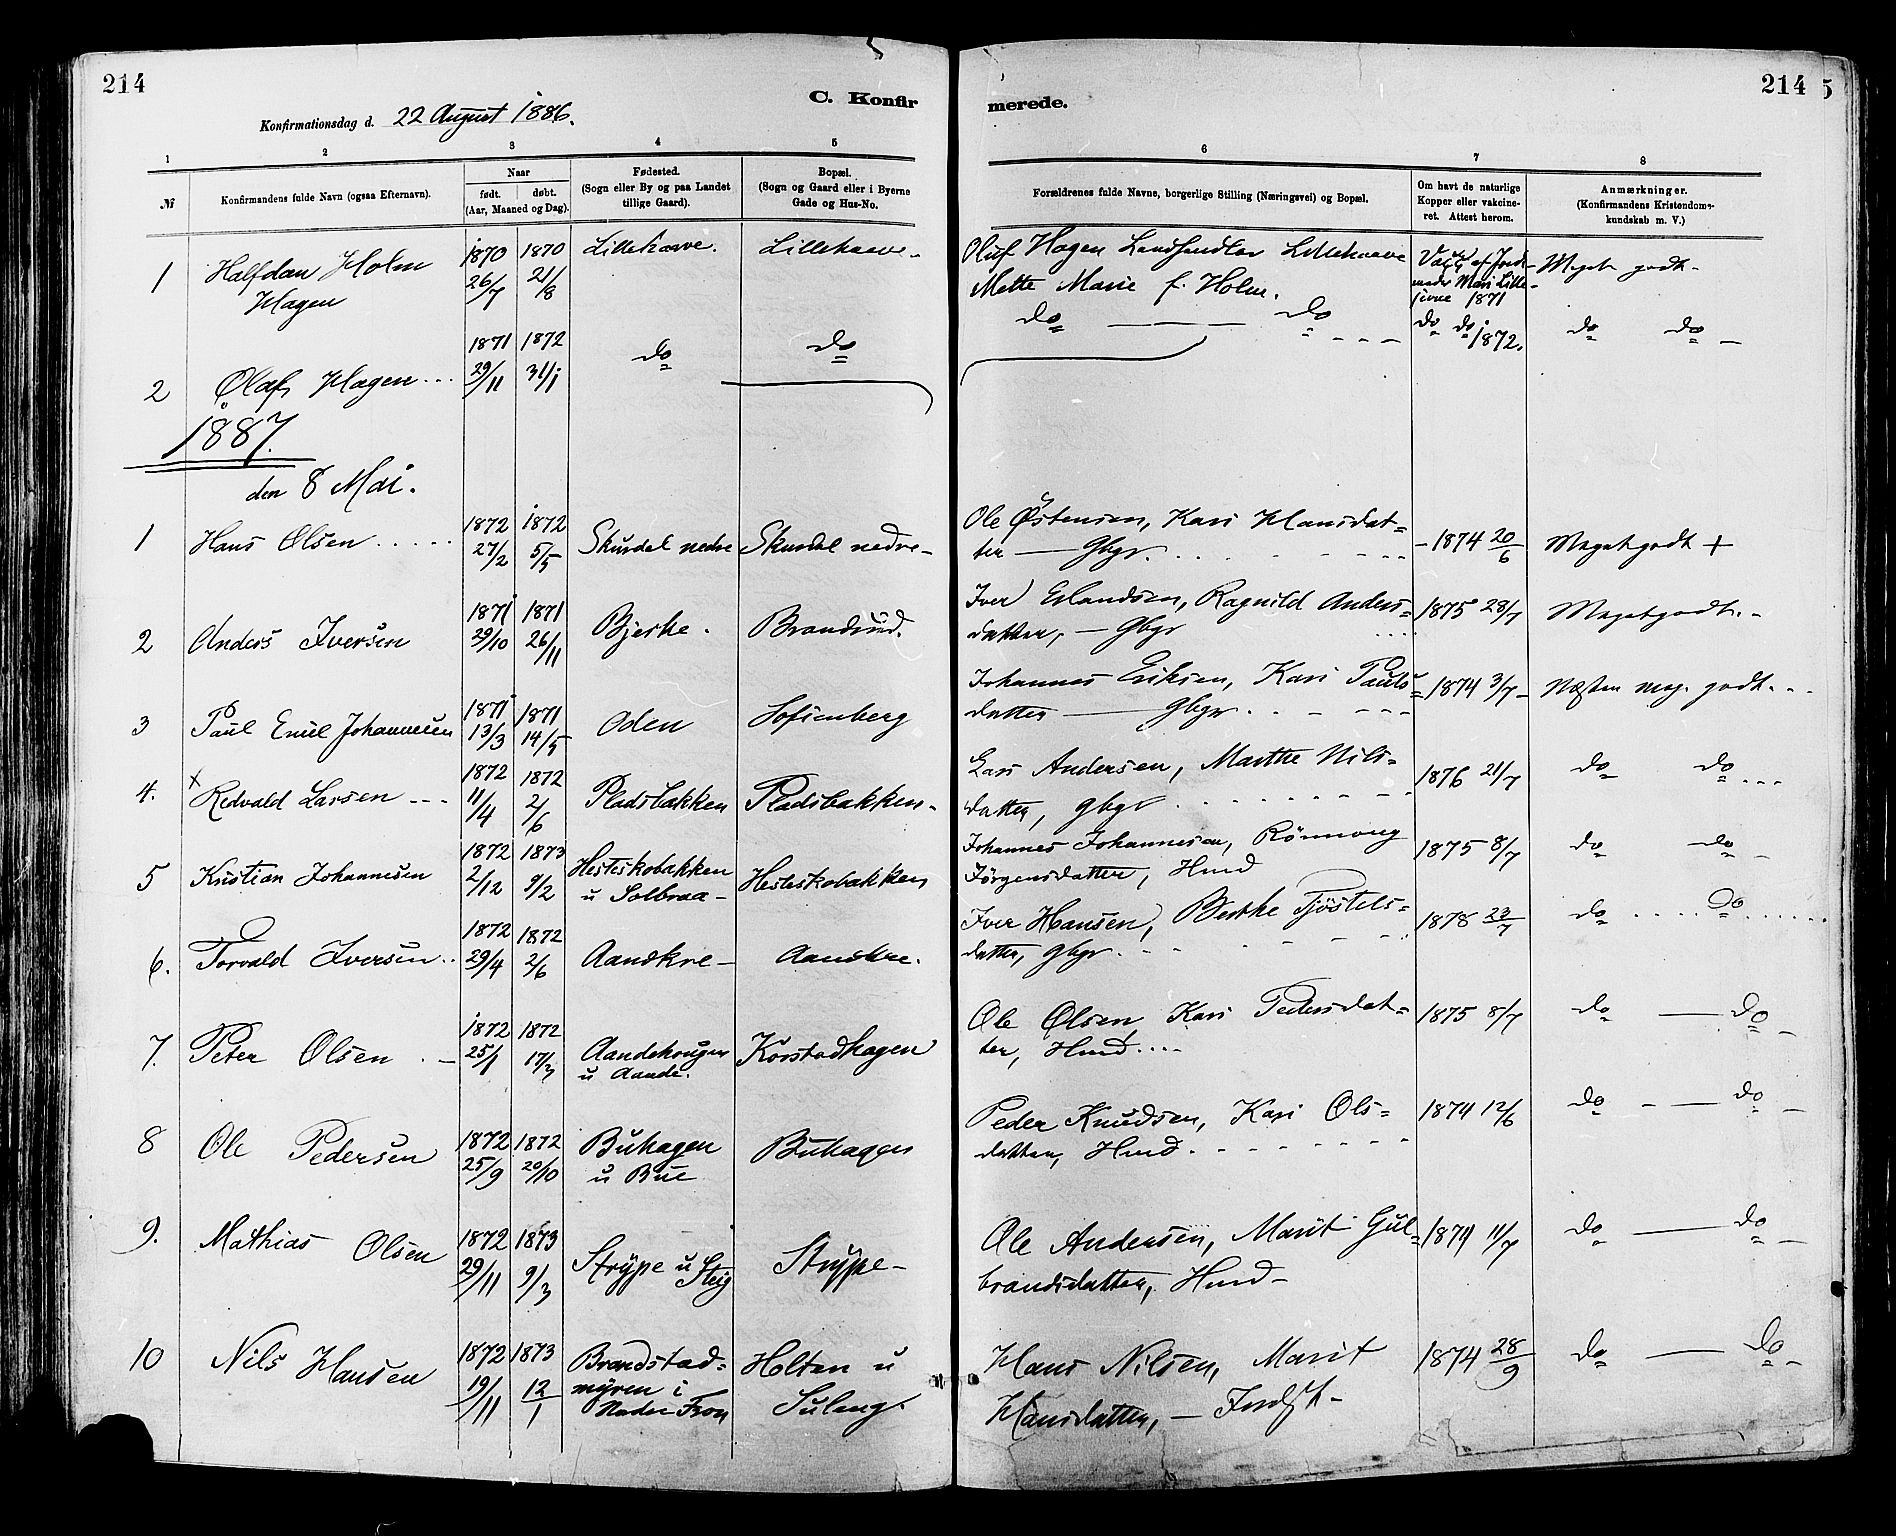 214
C. Konfir
merede.
214
5
Konfirmationsdag d. 22 August 1886.
1 2 3 4 5 6 7 8
№
Konfirmandens fulde Navn (ogsaa Efternavn).
Naar
født. døbt.
(Aar, Maaned og Dag).
Fødested.
(Sogn eller By og paa Landet
tillige Gaard).
Bopæl.
(Sogn og Gaard eller i Byerne
Gade og Hus-No.
Forældrenes fulde Navne, borgerlige Stilling (Næringsvei) og Bopæl.
Om havt de naturlige
Kopper eller vakcine-
ret. Attest herom.
Anmærkninger.
(Konfirmandens Kristendoms-
kundskab m. V.)
1 Halfdan Holm 1870 1870 Lillehaave. Lillehaave. Oluf Hagen Landhandler Lillehaave
Hagen 26/7 21/8 Mette Marie f. Holm. 1871 Meget godt.
2 Olaf Hagen 1871 1872 do do do — do do do 1872. do do
29/11 31/1
1887.
den 8 Mai.
1 Hans Olsen 1872 1872 Skurdal nedre Skurdal nedre Ole Østensen, Kari Hansdat=
27/2 5/5 ter — Gbgr. 1874 20/6 Meget godt +
2 Anders Iversen 1871 1871 Bjerke. Brandrud. Iver Erlandsen, Ragnild Anders=
29/10 26/11 datter, — Gbgr 1875 28/7 Meget godt.
3 Paul Emil Johannesen 1871 1871 Oden Sofienberg Johannes Eriksen, Kari Pauls=
13/3 14/5 datter — Gbgr. 1874 3/7 Næsten meg. godt.
4. + Redvald Larsen 1872 1872 Pladsbakken Pladsbakken Lars Andersen, Marthe Nils=
11/4 2/6 datter, gbgr 1876 21/7 do do
5 Kristian Johannesen 1872 1873 Hesteskobakken Hesteskobakken Johannes Johannesen, Rönnoug
2/12 9/2 u Solbraa Jörgensdatter, Hmd 1875 8/7 do do
6. Torvald Iversen 1872 1872 Aandkre Aandkre. Iver Hansen, Berthe Tjöstels=
29/4 2/6 datter, gbgr. 1878 23/7 do do
7. Peter Olsen 1872 1872 Aandehougen Korstadhagen Ole Olsen, Kari Pedersdat=
25/1 17/3 u Aande. ter, Hmd 1875 8/7 do — do
8 Ole Pedersen 1872 1872 Buhagen Buhagen Peder Knudsen, Kari Ols=
25/9 20/10 u Bue datter, Hmd. 1874 12/6 do — do
9. Mathias Olsen 1872 1873 Strype u Steig Strype Ole Andersen, Marit Gul=
29/11 9/3 brandsdatter, Hmd 1874 11/7 do — do
10 Nils Hansen 1872 1873 Brandstad= Holten u Hans Nilsen, Marit
19/11 12/1 myren i Suleng. Hansdatter, — 1874 28/9 do — do
Nordre Fron